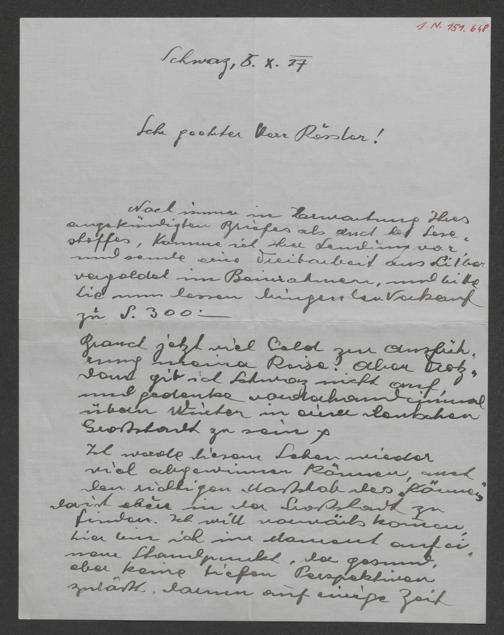 I. N. 151.648
Schwaz, 8. X. 27
Sehr geehrter Herr Rössler!
Noch immer in Erwartung Ihres
angekündigten Briefes als auch des Lese-
stoffes, komme ich Ihrer Sendung vor
und sende eine Treibarbeit aus Silber
vergoldet im Beinrahmen, und bitte
Sie um dessen dringenden Verkauf
zu S. 300.—
Brauch jetzt viel Geld zur Ausfüh-
rung meiner Reise! Aber trotz-
dem gib ich Schwaz nicht auf,
und gedenke vorderhand einmal
übern Winter in einer deutschen
Großstadt zu sein
Ich werde diesem Leben wieder
viel abgewinnen können, auch
den richtigen Maßstab des „Können"
darin eben in der Großstadt zu
finden. Ich will vorwärts kommen,
hier bin ich im Moment auf ei-
nem Standpunkt, der gesund,
aber keine tiefen Perspektiven
zuläßt. darum auf einige Zeit